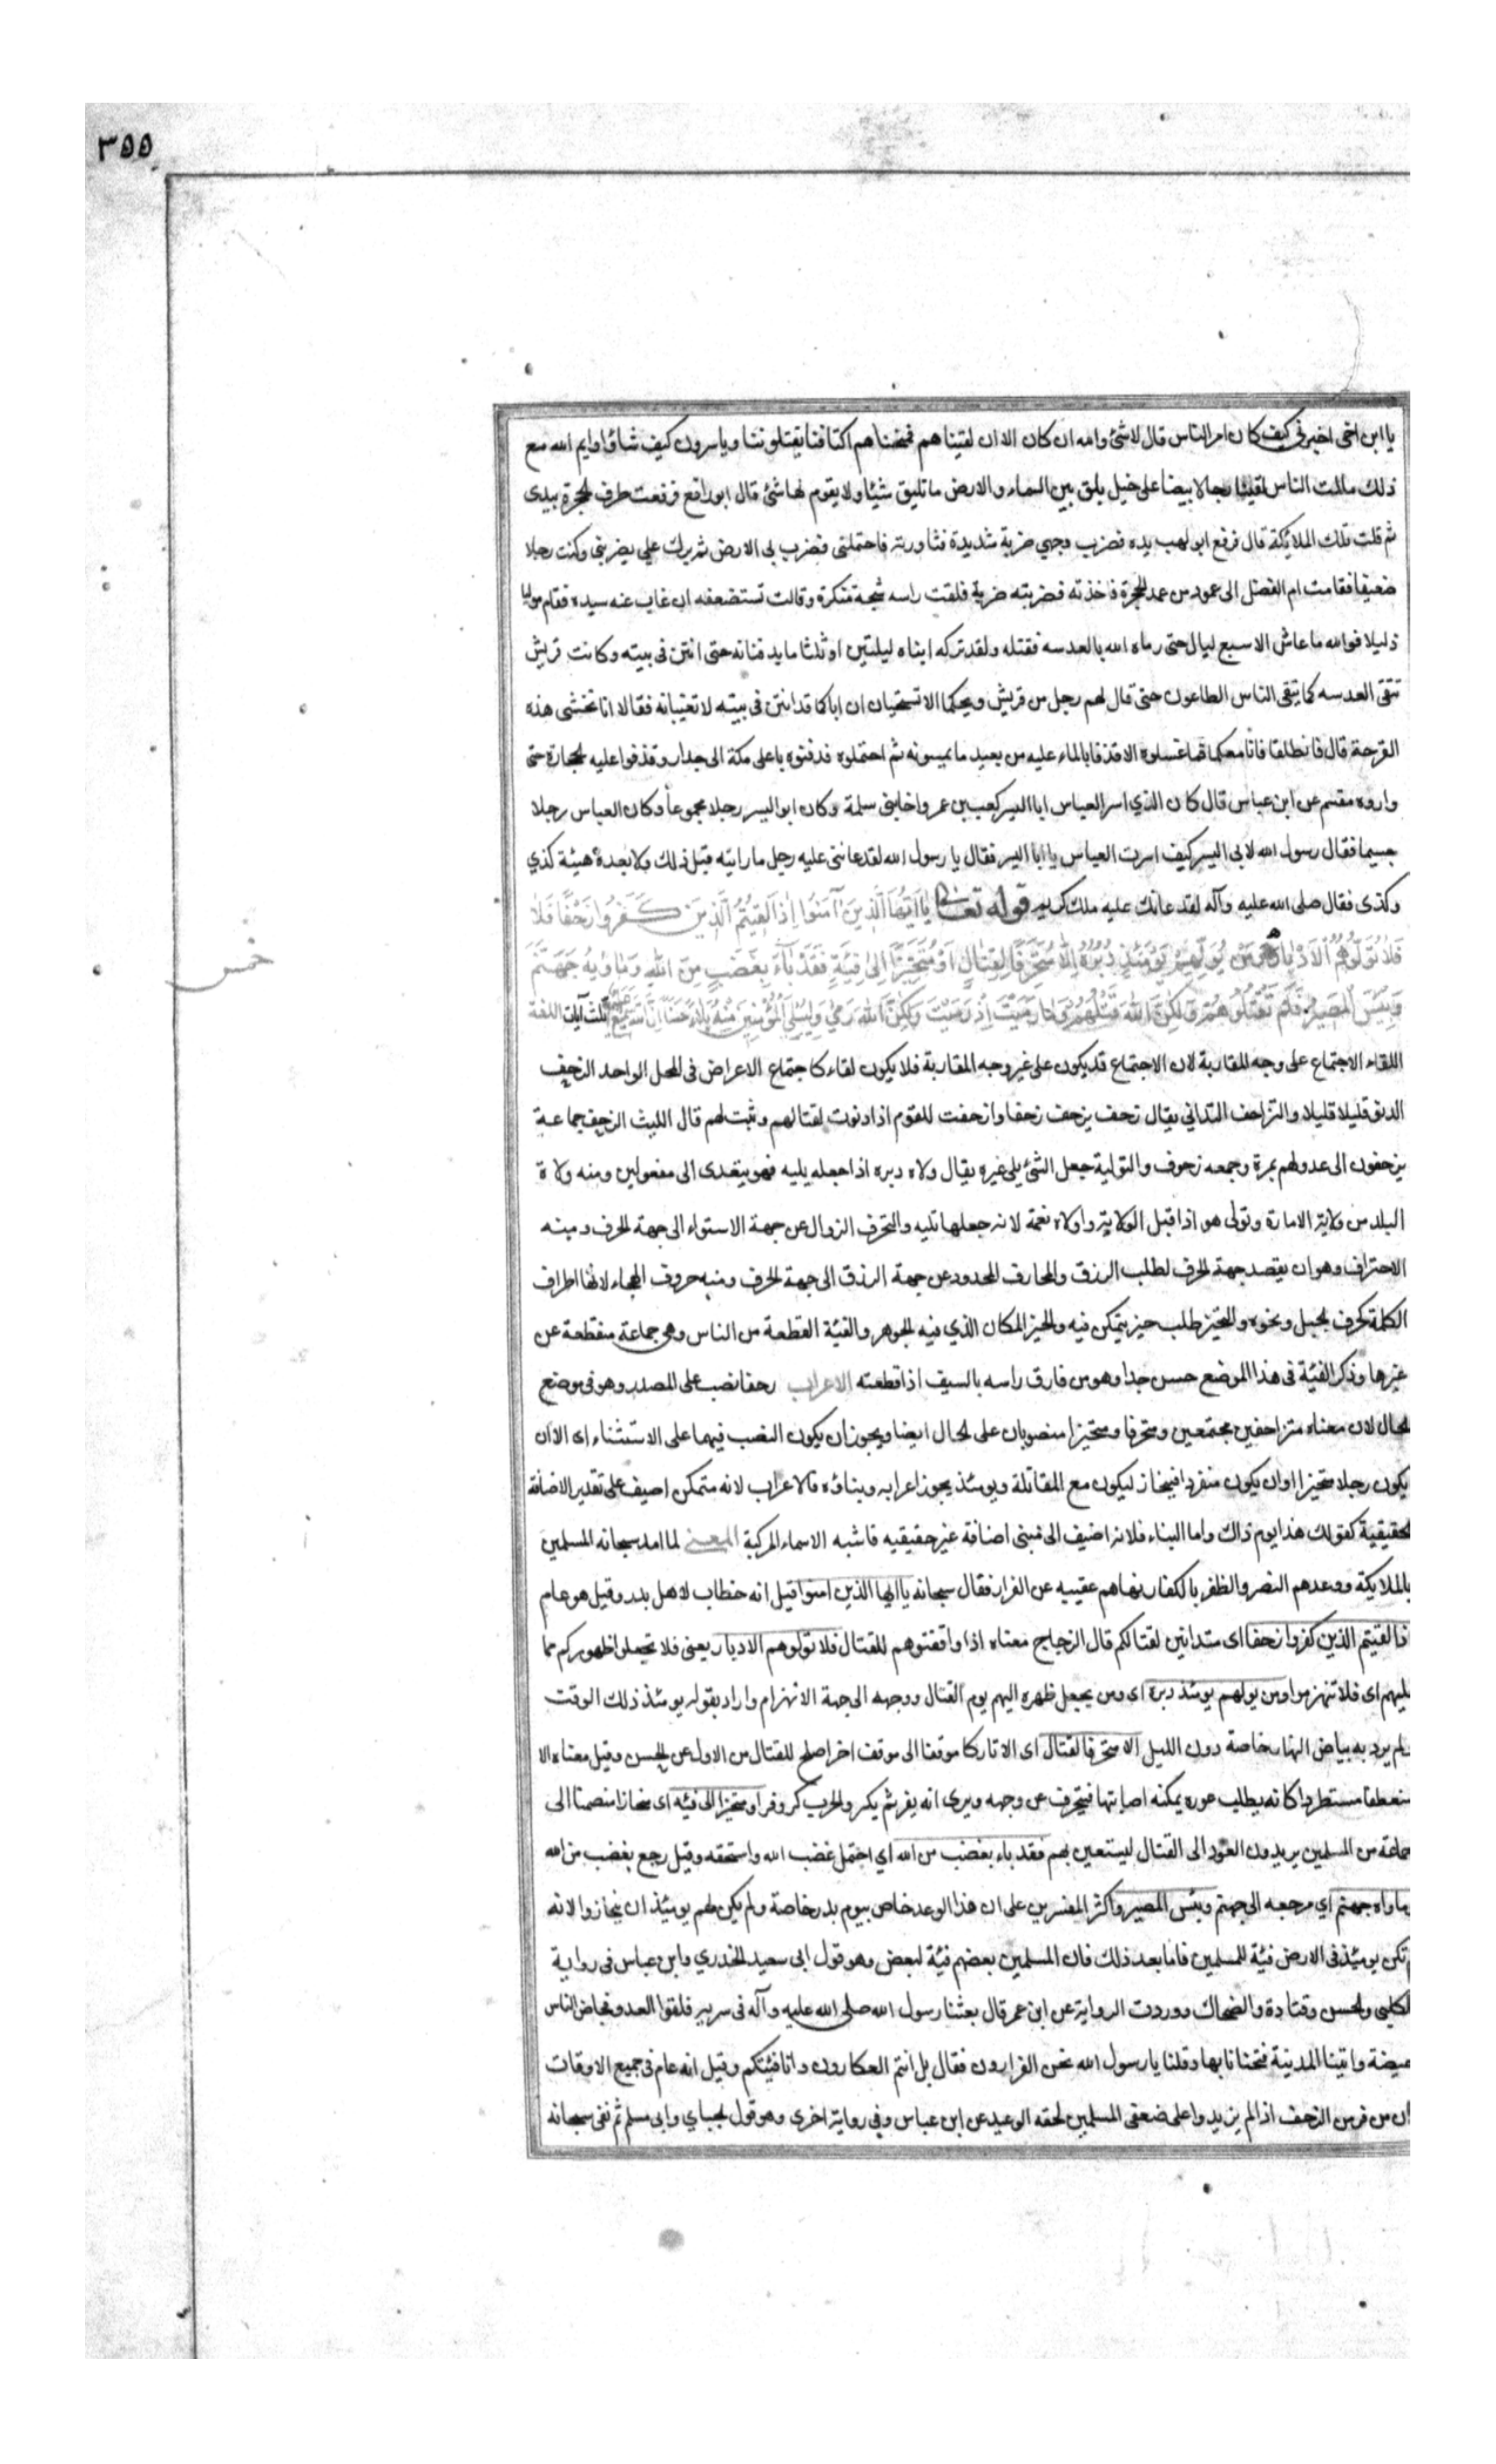 ٣٥٥
يا ابن اخى اخبرنى كيف كان امر الناس قال لا شئ والله ان كان الا ان لقيناهم فمنحناهم اكتافنا يقتلوننا وياسرون كيف شاؤا وايم الله مع
ذلك مالمت الناس لقينا رجالا بيضا على خيل بلق بين السماء والارض ما تليق شيئا ولا يقوم لها شئ قال ابو رافع فرفعت طرف الحجرة بيدى
ثم قلت تلك الملائكة قال فرفع ابو لهب يده فضرب وجهي ضربة شديدة فثاورته فاحتملنى فضرب بى الارض ثم برك علي يضربنى وكنت رجلا
ضعيفا فقامت ام الفضل الى عمود من عمد الحجرة فاخذته فضربته ضربة فلقت راسه شجة منكرة وقالت تستضعفه ان غاب عنه سيده فقام موليا
ذليلا فوالله ما عاش الا سبع ليال حتى رماه الله بالعدسه فقتله ولقد تركه ابناه ليلتين او ثلثا ما يدفنانه حتى انتن فى بيته وكانت قريش
تتقى العدسه كما يتقى الناس الطاعون حتى قال لهم رجل من قريش ويحكما الا تستحيان ان اباكما قد انتن فى بيته لا تغيبانه فقالا انا نخشى هذه
القرحة قال فانطلقا فانا معكما فما غسلوه الا قذفا بالماء عليه من بعيد ما يمسونه ثم احتملوه فدفنوه باعلى مكة الى جدار وقذفوا عليه الحجارة حتى
واروه مقسم عن ابن عباس قال كان الذي اسر العباس ابا اليسر كعب بن عمرو اخا بنى سلمة وكان ابو اليسر رجلا مجموعا وكان العباس رجلا
جسيما فقال رسول الله لابى اليسر كيف اسرت العباس يا ابا اليسر فقال يا رسول الله لقد عاننى عليه رجل ما رايته قبل ذلك ولا بعده هيئة كذي
وكذى فقال صلى الله عليه وآله لقد عانك عليه ملك كريم قوله تعالى يا ايها الذين آمنوا اذا لقيتم الذين كفروا زحفا فلا
فلا تولوهم الادبار ومن يولهم يومئذ دبره الا متحرفا لقتال او متحيزا الى فئة فقد باء بغضب من الله وماويه جهنم
وبئس المصير فلم تقتلوهم ولكن الله قتلهم وما رميت اذ رميت ولكن الله رمى وليبلى المؤمنين منه بلاء حسنا ان الله سميع عليم ثلث آيات اللغة
خمس
اللقاء الاجتماع على وجه المقاربة لان الاجتماع قد يكون على غير وجه المقاربة فلا يكون لقاء كاجتماع الاعراض فى المحل الواحد الزحف
الدنو قليلا قليلا والتزاحف التدانى يقال زحف يزحف زحفا وازحفت للقوم اذا دنوت لقتالهم وثبت لهم قال الليث الزحف جماعة
يزحفون الى عدو لهم بمرة وجمعه زحوف والتولية جعل الشئ يلى غيره يقال ولاه دبره اذا جعله يليه فهو يتعدى الى مفعولين ومنه ولاة
البلد من ولاية الامارة وتولى هو اذا قبل الولاية واولاه نعمة لانه جعلها تليه والتحرف الزوال عن جهة الاستواء الى جهة الحرف ومنه
الاحتراف وهو ان يقصد جهة الحرف لطلب الرزق والمحارف المحدود عن جهة الرزق الى جهة الحرف ومنه حروف الهجاء لانها اطراف
الكلمة كحرف الجبل ونحوه والتحيز طلب حيز يتمكن فيه والحيز المكان الذي فيه الجوهر والفئة القطعة من الناس وهى جماعة منقطعة عن
غيرها وذكر الفئة فى هذا الموضع حسن جدا وهو من فارق راسه بالسيف اذا قطعته الاعراب زحفا نصب على المصدر وهو فى موضع
الحال لان معناه متزاحفين مجتمعين ومتحرفا ومتحيزا منصوبان على الحال ايضا ويجوز ان يكون النصب فيهما على الاستثناء اى الا ان
يكون رجلا متحيزا او ان يكون منفردا فينحاز ليكون مع المقاتلة ويومئذ يجوز اعرابه وبناؤه فالاعراب لانه متمكن اضيف على تقدير الاضافة
الحقيقية كقولك هذا يوم ذاك واما البناء فلانه اضيف الى مبنى اضافة غير حقيقيه فاشبه الاسماء المركبة المعنى لما امد سبحانه المسلمين
بالملايكة ووعدهم النصر والظفر بالكفار نهاهم عقيبه عن الفرار فقال سبحانه يا ايها الذين امنوا قيل انه خطاب لاهل بدر وقيل هو عام
اذا لقيتم الذين كفروا زحفا اى متدانين لقتالكم قال الزجاج معناه اذا واقفتموهم للقتال فلا تولوهم الادبار يعنى فلا تجعلوا ظهوركم مما
يليهم اى فلا تنهزموا ومن يولهم يومئذ دبره اى ومن يجعل ظهره اليهم يوم القتال ووجهه الى جهة الانهزام واراد بقوله يومئذ ذلك الوقت
ولم يرد به بياض النهار خاصة دون الليل الا متحرفا لقتال اى الا تاركا موقفا الى موقف اخر اصلح للقتال من الاول عن الحسن وقيل معناه الا
منعطفا مستطردا كانه يطلب عوره يمكنه اصابتها فيتحرف عن وجهه ويرى انه يفر ثم يكر والحرب كر وفر او متحيزا الى فئه اى منحازا منضما الى
جماعة من المسلمين يريدون العود الى القتال ليستعين بهم فقد باء بغضب من الله اي احتمل غضب الله واستحقه وقيل رجع بغضب من الله
وماواه جهنم اي مرجعه الى جهنم وبئس المصير واكثر المفسرين على ان هذا الوعد خاص بيوم بدر خاصة ولم يكن لهم يومئذ ان ينحازوا لانه
تكن يومئذ فى الارض فئة للمسلمين فاما بعد ذلك فان المسلمين بعضهم فئة لبعض وهو قول ابى سعيد الخدري وابن عباس فى رواية
الكلبى والحسن وقتادة والضحاك ووردت الرواية عن ابن عمر قال بعثنا رسول الله صلى الله عليه وآله فى سرية فلقوا العدو فحاض الناس
حيضة واتينا المدينة فتخبانا بها وقلنا يا رسول الله نحن الفرارون فقال بل انتم العكارون وانا فئتكم وقيل انه عام فى جميع الاوقات
ان من فر من الزحف اذا لم يزيدوا على ضعفى المسلمين لحقه الوعيد عن ابن عباس وفي رواية اخرى وهو قول الجباي وابى مسلم ثم نفى سبحانه